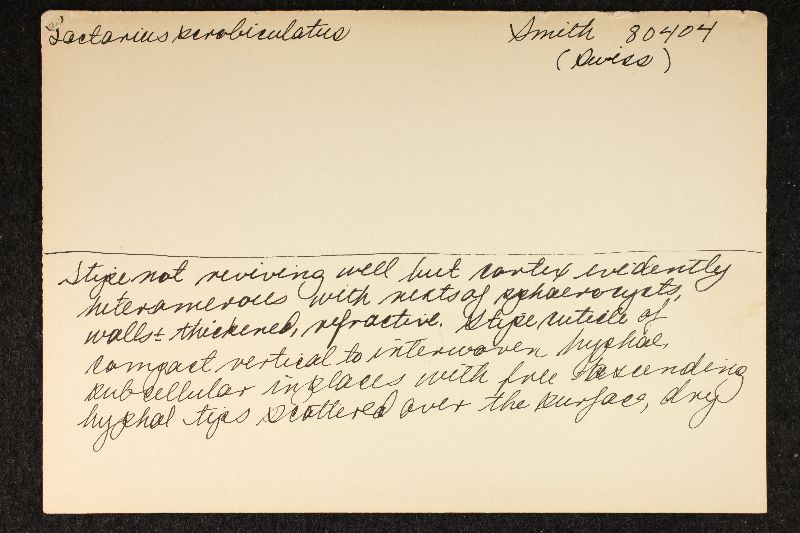 Lactarius scrobiculatus
Smith 80404
(Swiss)
Stipe not reviving well but cortex evidently
heteromerous with nests of sphaerocysts,
walls ± thickened, refractive. Stipe cuticle of
compact vertical to interwoven hyphae,
subcellular in places with free ascending
hyphal tips scattered over the surface, dry